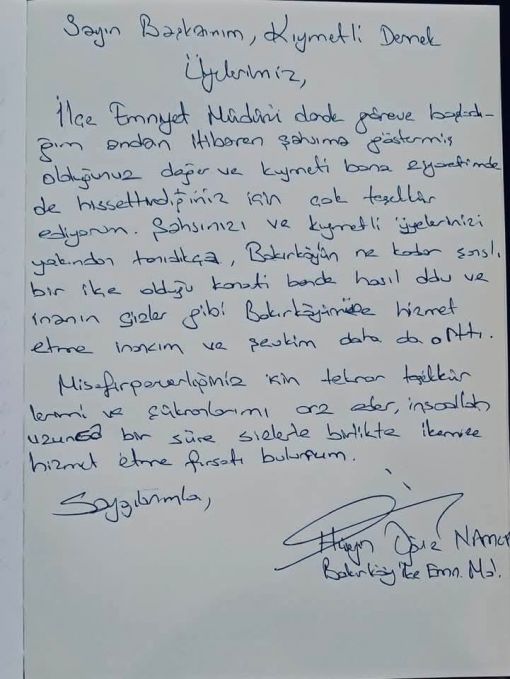 Sayın Başkanım, Kıymetli Dernek
Üyelerimiz,
İlçe Emniyet Müdürü olarak göreve başladı-
ğım andan itibaren şahsıma göstermiş
olduğunuz değer ve kıymeti bana ziyaretimde
de hissettirdiğiniz için çok teşekkür
ediyorum. Şahsınızı ve kıymetli üyelerinizi
yakından tanıdıkça, Bakırköyün ne kadar şanslı
bir ilçe olduğu kanati bende hasıl oldu ve
inanın sizler gibi Bakırköyümüze hizmet
etme inancım ve şevkim daha da arttı.
Misafirperverliğiniz için tekrar teşekkür
lerimi ve şükranlarımı arz eder, inşaallah
uzunca bir süre sizlerle birlikte ilçemize
hizmet etme fırsatı bulurum.
Saygılarımla,
NAMLI
Bakırköy İlçe Emn. Md.